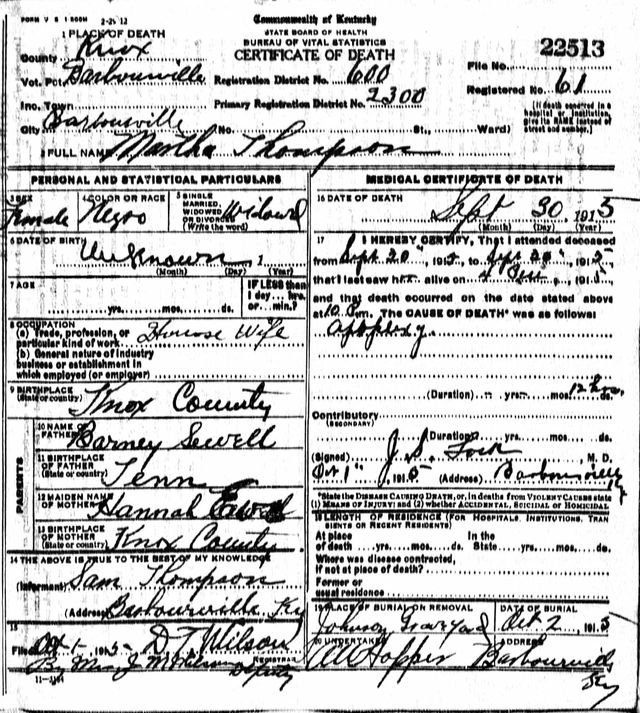 FORM V S 1 2-25 12
Commonwealth of Kentucky
STATE BOARD OF HEALTH
BUREAU OF VITAL STATISTICS
CERTIFICATE OF DEATH
1 PLACE OF DEATH
County Knox
Vot. Pct. Barbourville
Inc. Town
City Barbourville (No. St., Ward)
Registration District No. 600
Primary Registration District No. 2300
File No. 22513
Registered No. 61
[If death occurred in a hospital or institution, give its NAME instead of street and number.]
2 FULL NAME Martha Thompson
PERSONAL AND STATISTICAL PARTICULARS
3 SEX Female
4 COLOR OR RACE Negro
5 SINGLE, MARRIED, WIDOWED OR DIVORCED (Write the word) Widowed
6 DATE OF BIRTH Unknown 1
(Month) (Day) (Year)
7 AGE
yrs. mos. ds.
IF LESS than 1 day... hrs. or... min.?
8 OCCUPATION
(a) Trade, profession, or particular kind of work House Wife
(b) General nature of industry business or establishment in which employed (or employer)
9 BIRTHPLACE (State or country) Knox County
PARENTS
10 NAME OF FATHER Barney Sewell
11 BIRTHPLACE OF FATHER (State or country) Tenn
12 MAIDEN NAME OF MOTHER Hannah
13 BIRTHPLACE OF MOTHER (State or country) Knox County
14 THE ABOVE IS TRUE TO THE BEST OF MY KNOWLEDGE
(Informant) Sam Thompson
(Address) Barbourville Ky
15
Filed Oct 1, 1915 D T Wilson
REGISTRAR
By Deputy
11-3184
MEDICAL CERTIFICATE OF DEATH
16 DATE OF DEATH
Sept 30, 1915
(Month) (Day) (Year)
17 I HEREBY CERTIFY, That I attended deceased
from Sept 20, 1915, to Sept, 1915
that I last saw h alive on, 1915
and that death occurred on the date stated above
at 10 m. The CAUSE OF DEATH* was as follows:
apoplexy
(Duration) yrs. mos. ds. 12 hrs.
Contributory
(SECONDARY)
(Duration) yrs. mos. ds.
(Signed) J. S. Lock M. D.
Oct 1st, 1915 (Address) Barbourville Ky
*State the DISEASE CAUSING DEATH, or, in deaths from VIOLENT CAUSES state (1) MEANS OF INJURY; and (2) whether ACCIDENTAL, SUICIDAL or HOMICIDAL
18 LENGTH OF RESIDENCE (FOR HOSPITALS, INSTITUTIONS, TRANSIENTS OR RECENT RESIDENTS)
At place of death yrs. mos. ds. In the State yrs. mos. ds.
Where was disease contracted, if not at place of death?
Former or usual residence
19 PLACE OF BURIAL OR REMOVAL Johnson Graveyard
DATE OF BURIAL Oct 2, 1915
20 UNDERTAKER Hopper
ADDRESS Barbourville Ky